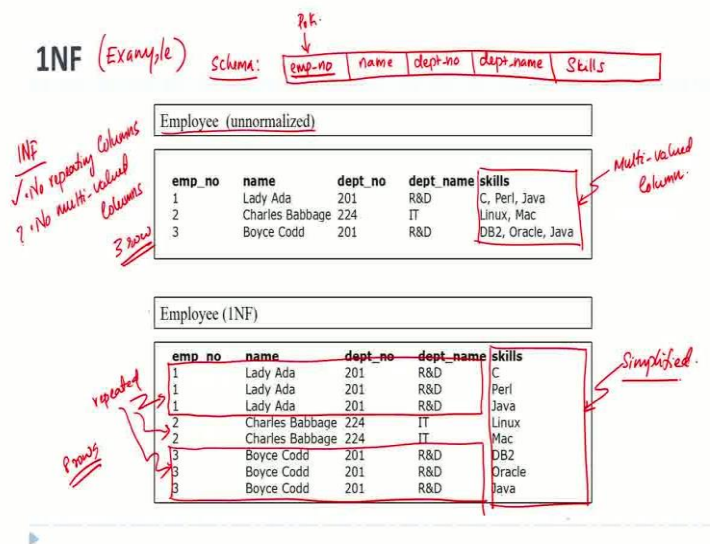 P.K.
1NF (Example) Schema: emp-no name dept-no dept_name Skills
Employee (unnormalized)
1NF
✓ · No repeating Columns
? · No multi-valued Columns
3 row
emp_no name dept_no dept_name skills
1 Lady Ada 201 R&D C, Perl, Java
2 Charles Babbage 224 IT Linux, Mac
3 Boyce Codd 201 R&D DB2, Oracle, Java
Multi-valued
Column.
Employee (1NF)
emp_no name dept_no dept_name skills
1 Lady Ada 201 R&D C
1 Lady Ada 201 R&D Perl
1 Lady Ada 201 R&D Java
2 Charles Babbage 224 IT Linux
2 Charles Babbage 224 IT Mac
3 Boyce Codd 201 R&D DB2
3 Boyce Codd 201 R&D Oracle
3 Boyce Codd 201 R&D Java
repeated
8 rows
Simplified.